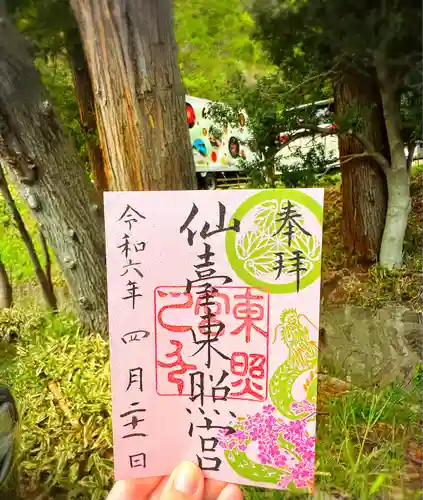 奉拝
仙臺東照宮
令和六年四月二十一日
東照